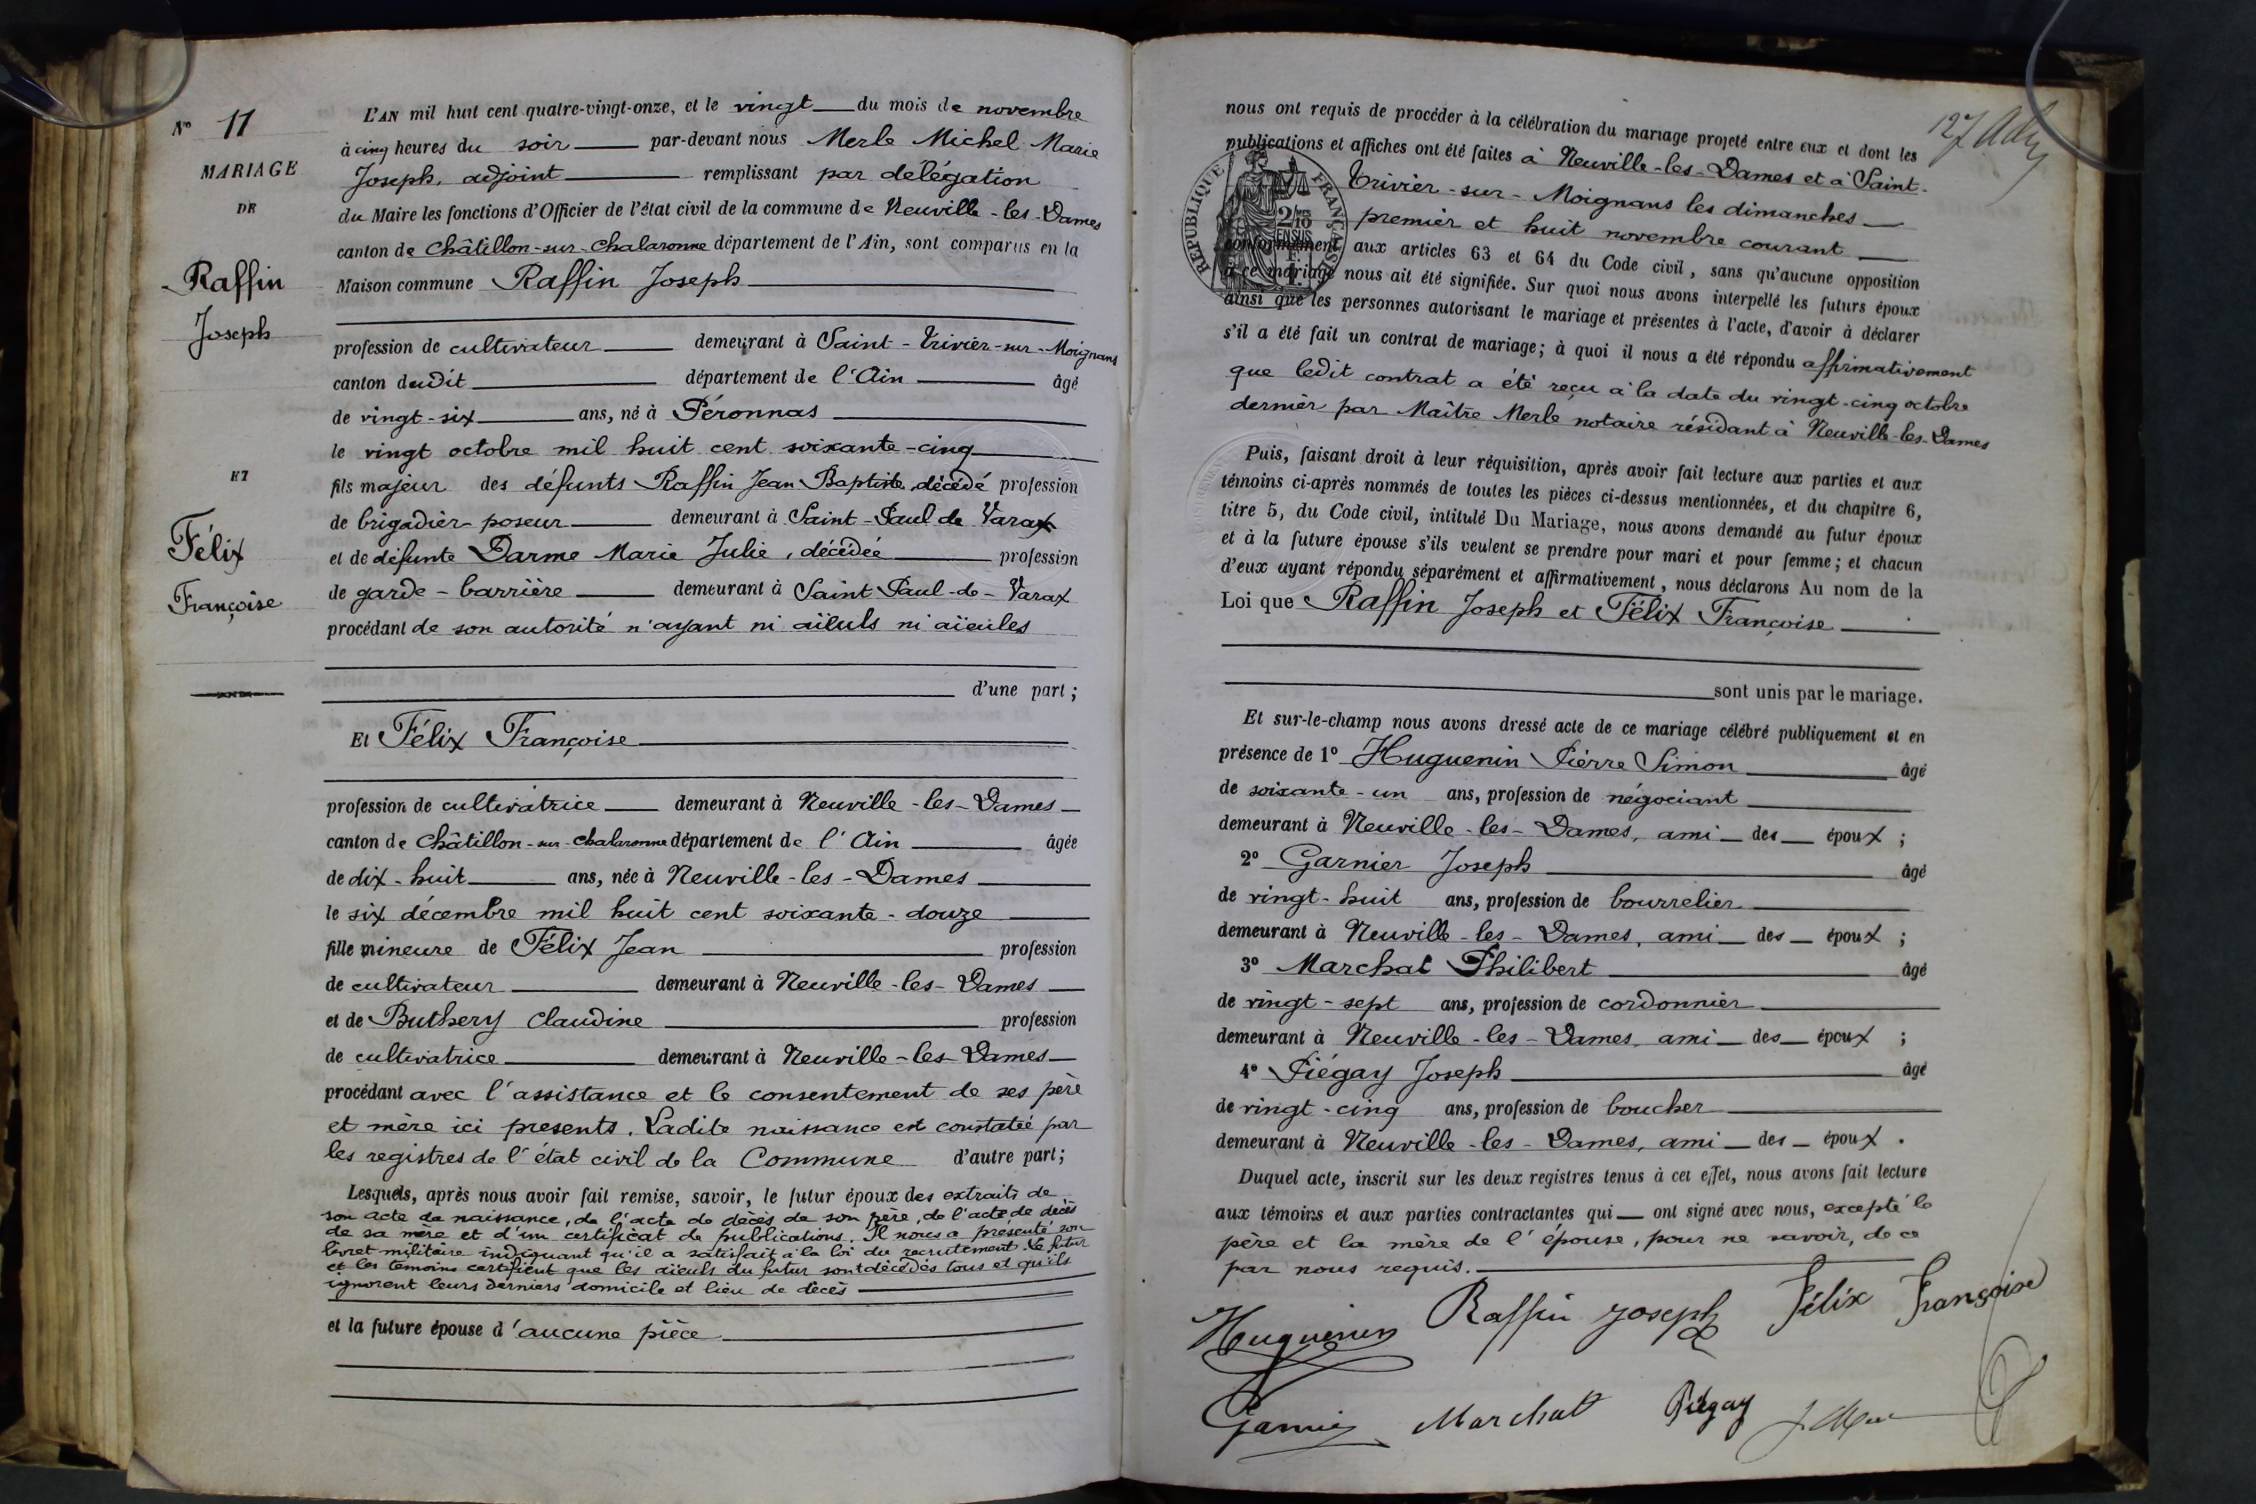 Nº 11
MARIAGE
DE
Raffin
Joseph
ET
Félix
Françoise
L'AN mil huit cent quatre-vingt-onze, et le vingt du mois de novembre
à cinq heures du soir par-devant nous Merle Michel Marie
Joseph, adjoint remplissant par délégation
du Maire les fonctions d'Officier de l'état civil de la commune de Neuville-les-Dames
canton de Châtillon-sur-Chalaronne département de l'Ain, sont comparus en la
Maison commune Raffin Joseph
profession de cultivateur demeurant à Saint-Trivier-sur-Moignans
canton dudit département de l'Ain âgé
de vingt-six ans, né à Péronnas
le vingt octobre mil huit cent soixante-cinq
fils majeur des défunts Raffin Jean Baptiste, décédé profession
de brigadier-poseur demeurant à Saint-Paul de Varax
et de défunte Darme Marie Julie, décédée profession
de garde-barrière demeurant à Saint Paul-de-Varax
procédant de son autorité n'ayant ni aïeuls ni aïeules
d'une part;
Et Félix Françoise
profession de cultivatrice demeurant à Neuville-les-Dames
canton de Châtillon-sur-Chalaronne département de l'Ain âgée
de dix-huit ans, née à Neuville-les-Dames
le six décembre mil huit cent soixante-douze
fille mineure de Félix Jean profession
de cultivateur demeurant à Neuville-les-Dames
et de Buthery Claudine profession
de cultivatrice demeurant à Neuville-les-Dames
procédant avec l'assistance et le consentement de ses père
et mère ici presents. Ladite naissance est constatée par
les registres de l'état civil de la Commune d'autre part;
Lesquels, après nous avoir fait remise, savoir, le futur époux des extraits de
son acte de naissance, de l'acte de décès de son père, de l'acte de décès
de sa mère et d'un certificat de publications. Il nous a présenté son
livret militaire indiquant qu'il a satisfait à la loi du recrutement. Le futur
et les témoins certifient que les aïeuls du futur sont décédés tous et qu'ils
ignorent leurs derniers domicile et lieu de décès
et la future épouse d'aucune pièce
nous ont requis de procéder à la célébration du mariage projeté entre eux et dont les
publications et affiches ont été faites à Neuville-les-Dames et à Saint-
Trivier-sur-Moignans les dimanches
premier et huit novembre courant
conformément aux articles 63 et 64 du Code civil, sans qu'aucune opposition
à ce mariage nous ait été signifiée. Sur quoi nous avons interpellé les futurs époux
ainsi que les personnes autorisant le mariage et présentes à l'acte, d'avoir à déclarer
s'il a été fait un contrat de mariage; à quoi il nous a été répondu affirmativement
que ledit contrat a été reçu à la date du vingt-cinq octobre
dernier par Maître Merle notaire résidant à Neuville-les-Dames
RÉPUBLIQUE FRANÇAISE
Puis, faisant droit à leur réquisition, après avoir fait lecture aux parties et aux
témoins ci-après nommés de toutes les pièces ci-dessus mentionnées, et du chapitre 6,
titre 5, du Code civil, intitulé Du Mariage, nous avons demandé au futur époux
et à la future épouse s'ils veulent se prendre pour mari et pour femme; et chacun
d'eux ayant répondu séparément et affirmativement, nous déclarons Au nom de la
Loi que Raffin Joseph et Félix Françoise
sont unis par le mariage.
Et sur-le-champ nous avons dressé acte de ce mariage célébré publiquement et en
présence de 1º Huguenin Pierre Simon âgé
de soixante-un ans, profession de négociant
demeurant à Neuville-les-Dames, ami des époux;
2º Garnier Joseph âgé
de vingt-huit ans, profession de bourrelier
demeurant à Neuville-les-Dames, ami des époux;
3º Marchat Philibert âgé
de vingt-sept ans, profession de cordonnier
demeurant à Neuville-les-Dames, ami des époux;
4º Piégay Joseph âgé
de vingt-cinq ans, profession de boucher
demeurant à Neuville-les-Dames, ami des époux.
Duquel acte, inscrit sur les deux registres tenus à cet effet, nous avons fait lecture
aux témoins et aux parties contractantes qui ont signé avec nous, excepté le
père et la mère de l'épouse, pour ne savoir, de ce
par nous requis.
Huguenin Raffin Joseph Félix Françoise
Garnier Marchat Piégay